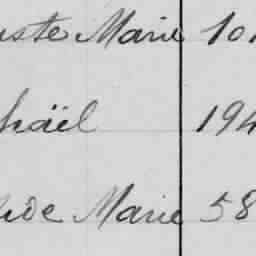 uste Marie 101
haël 194
hide Marie 58